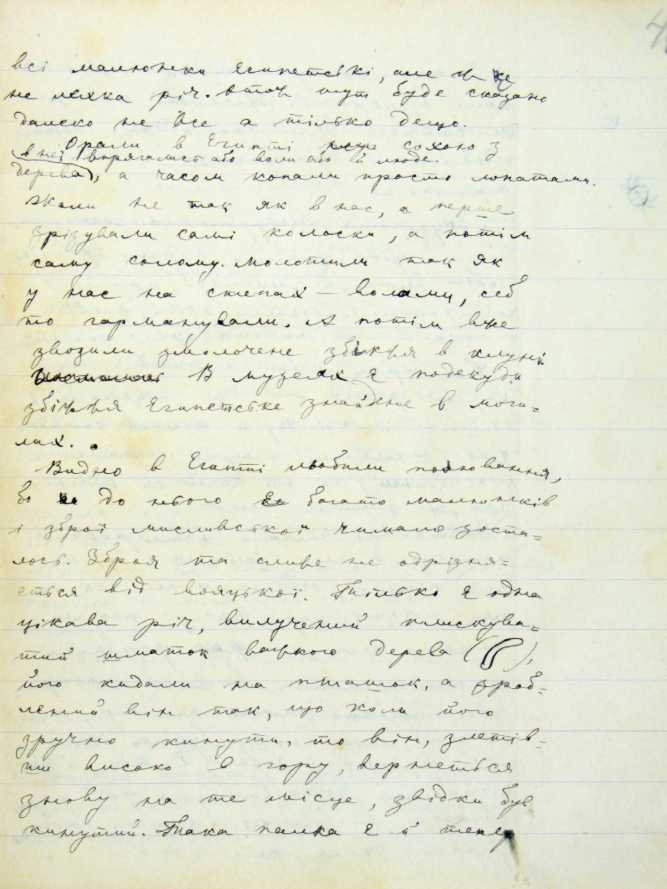 всі малюнки Египетські, але й це
не легка річ. втім тут буде сказано
далеко не все а тілько дещо.
Орали в Египті сохою з
в неї впрягались або воли або й люде.
дерева), а часом копали просто лопатами.
Жали не так як в нас, а перше
зрізували самі колоски, а потім
саму солому. Молотили так як
у нас на степах – волами, себ
то гарманували. А потім вже
звозили змолочене збіжжя в клуні
В музеях є подекуди
збіжжя Египетське знайдене в моги-
лах.
Видно в Египті любили полювання,
бо до нього багато малюнків
і зброї мисливської чимало зоста-
лось. Зброя та сливе не одрізня-
ється від вояцької. Тілько є одна
цікава річ, вилучений плискува-
тий шматок важкого дерева ( ),
його кидали на пташок, а зроб-
лений він так, що коли його
зручно кинути, то він, злетів-
ши високо в гору, вернеться
знову на те місце, звідки був
кинутий. Така палка є й тепер